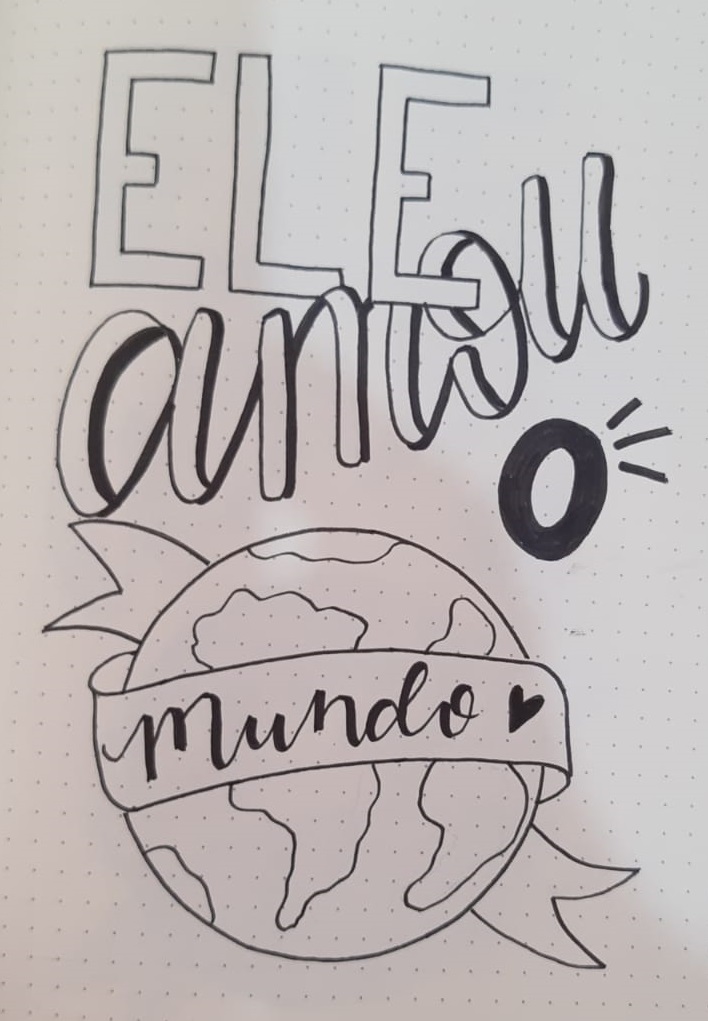 ELE
amou
O
mundo